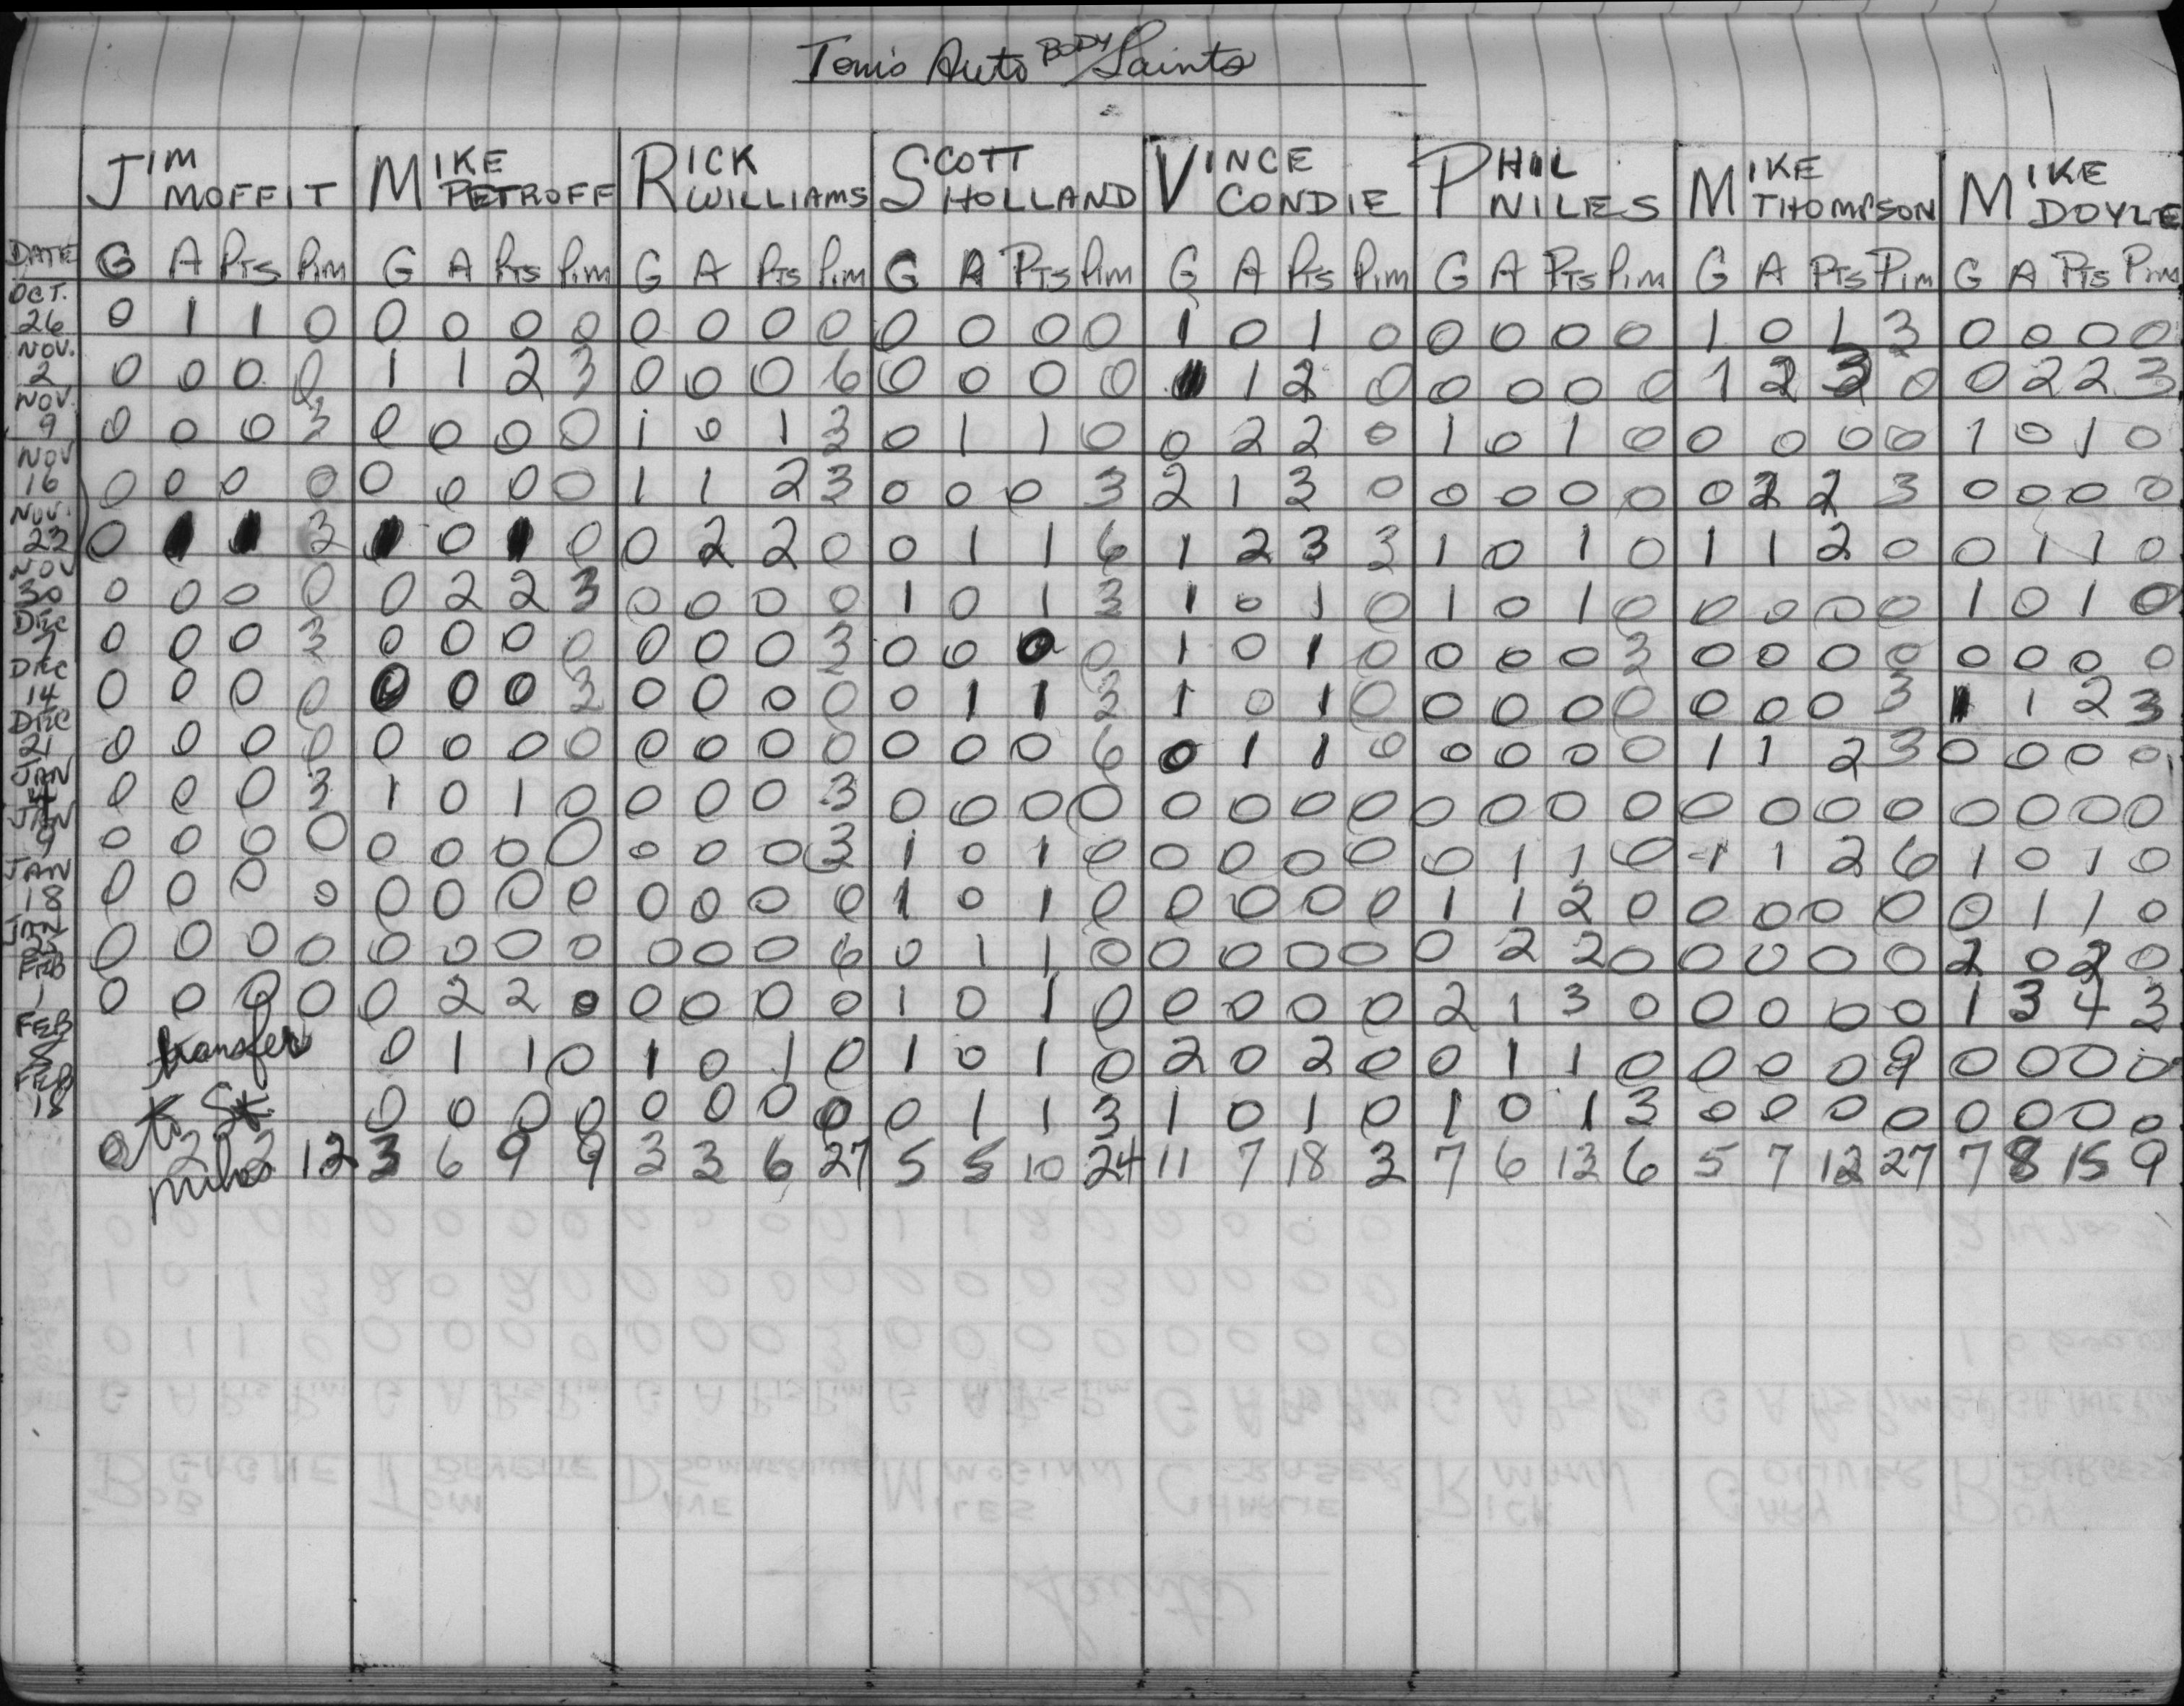 Tom's Auto BODY Saints
JIM MOFFIT MIKE PETROFF RICK WILLIAMS SCOTT HOLLAND VINCE CONDIE PHIL NILES MIKE THOMPSON MIKE DOYLE
DATE G A PTS PIM G A PTS PIM G A PTS PIM G A PTS PIM G A PTS PIM G A PTS PIM G A PTS PIM G A PTS PIM
OCT. 26 0 1 1 0 0 0 0 0 0 0 0 0 0 0 0 0 1 0 1 0 0 0 0 0 1 0 1 3 0 0 0 0
NOV. 2 0 0 0 0 1 1 2 3 0 0 0 6 0 0 0 0 1 1 2 0 0 0 0 0 1 2 3 0 0 2 2 3
NOV. 9 0 0 0 3 0 0 0 0 1 0 1 3 0 1 1 0 0 2 2 0 1 0 1 0 0 0 0 0 1 0 1 0
NOV 16 0 0 0 0 0 0 0 0 1 1 2 3 0 0 0 3 2 1 3 0 0 0 0 0 0 2 2 3 0 0 0 0
NOV. 23 0 1 1 3 1 0 1 0 0 2 2 0 0 1 1 6 1 2 3 3 1 0 1 0 1 1 2 0 0 1 1 0
NOV 30 0 0 0 0 0 2 2 3 0 0 0 0 1 0 1 3 1 0 1 0 1 0 1 0 0 0 0 0 1 0 1 0
DEC 7 0 0 0 3 0 0 0 0 0 0 0 3 0 0 0 0 1 0 1 0 0 0 0 3 0 0 0 0 0 0 0 0
DEC 14 0 0 0 0 0 0 0 3 0 0 0 0 0 1 1 3 1 0 1 0 0 0 0 0 0 0 0 3 1 1 2 3
DEC 21 0 0 0 0 0 0 0 0 0 0 0 0 0 0 0 6 0 1 1 0 0 0 0 0 1 1 2 3 0 0 0 0
JAN 4 0 0 0 3 1 0 1 0 0 0 0 3 0 0 0 0 0 0 0 0 0 0 0 0 0 0 0 0 0 0 0 0
JAN 9 0 0 0 0 0 0 0 0 0 0 0 3 1 0 1 0 0 0 0 0 0 1 1 0 1 1 2 6 1 0 1 0
JAN 18 0 0 0 0 0 0 0 0 0 0 0 0 1 0 1 0 0 0 0 0 1 1 2 0 0 0 0 0 0 1 1 0
JAN 0 0 0 0 0 0 0 0 0 0 0 6 0 1 1 0 0 0 0 0 0 2 2 0 0 0 0 0 2 0 2 0
FEB 1 0 0 0 0 0 2 2 0 0 0 0 0 1 0 1 0 0 0 0 0 2 1 3 0 0 0 0 0 1 3 4 3
FEB 8 transfer 0 1 1 0 1 0 1 0 1 0 1 0 2 0 2 0 0 1 1 0 0 0 0 9 0 0 0 0
FEB 18 to St. 0 0 0 0 0 0 0 0 0 1 1 3 1 0 1 0 1 0 1 3 0 0 0 0 0 0 0 0
0 2 2 12 3 6 9 9 3 3 6 27 5 5 10 24 11 7 18 3 7 6 13 6 5 7 12 27 7 8 15 9